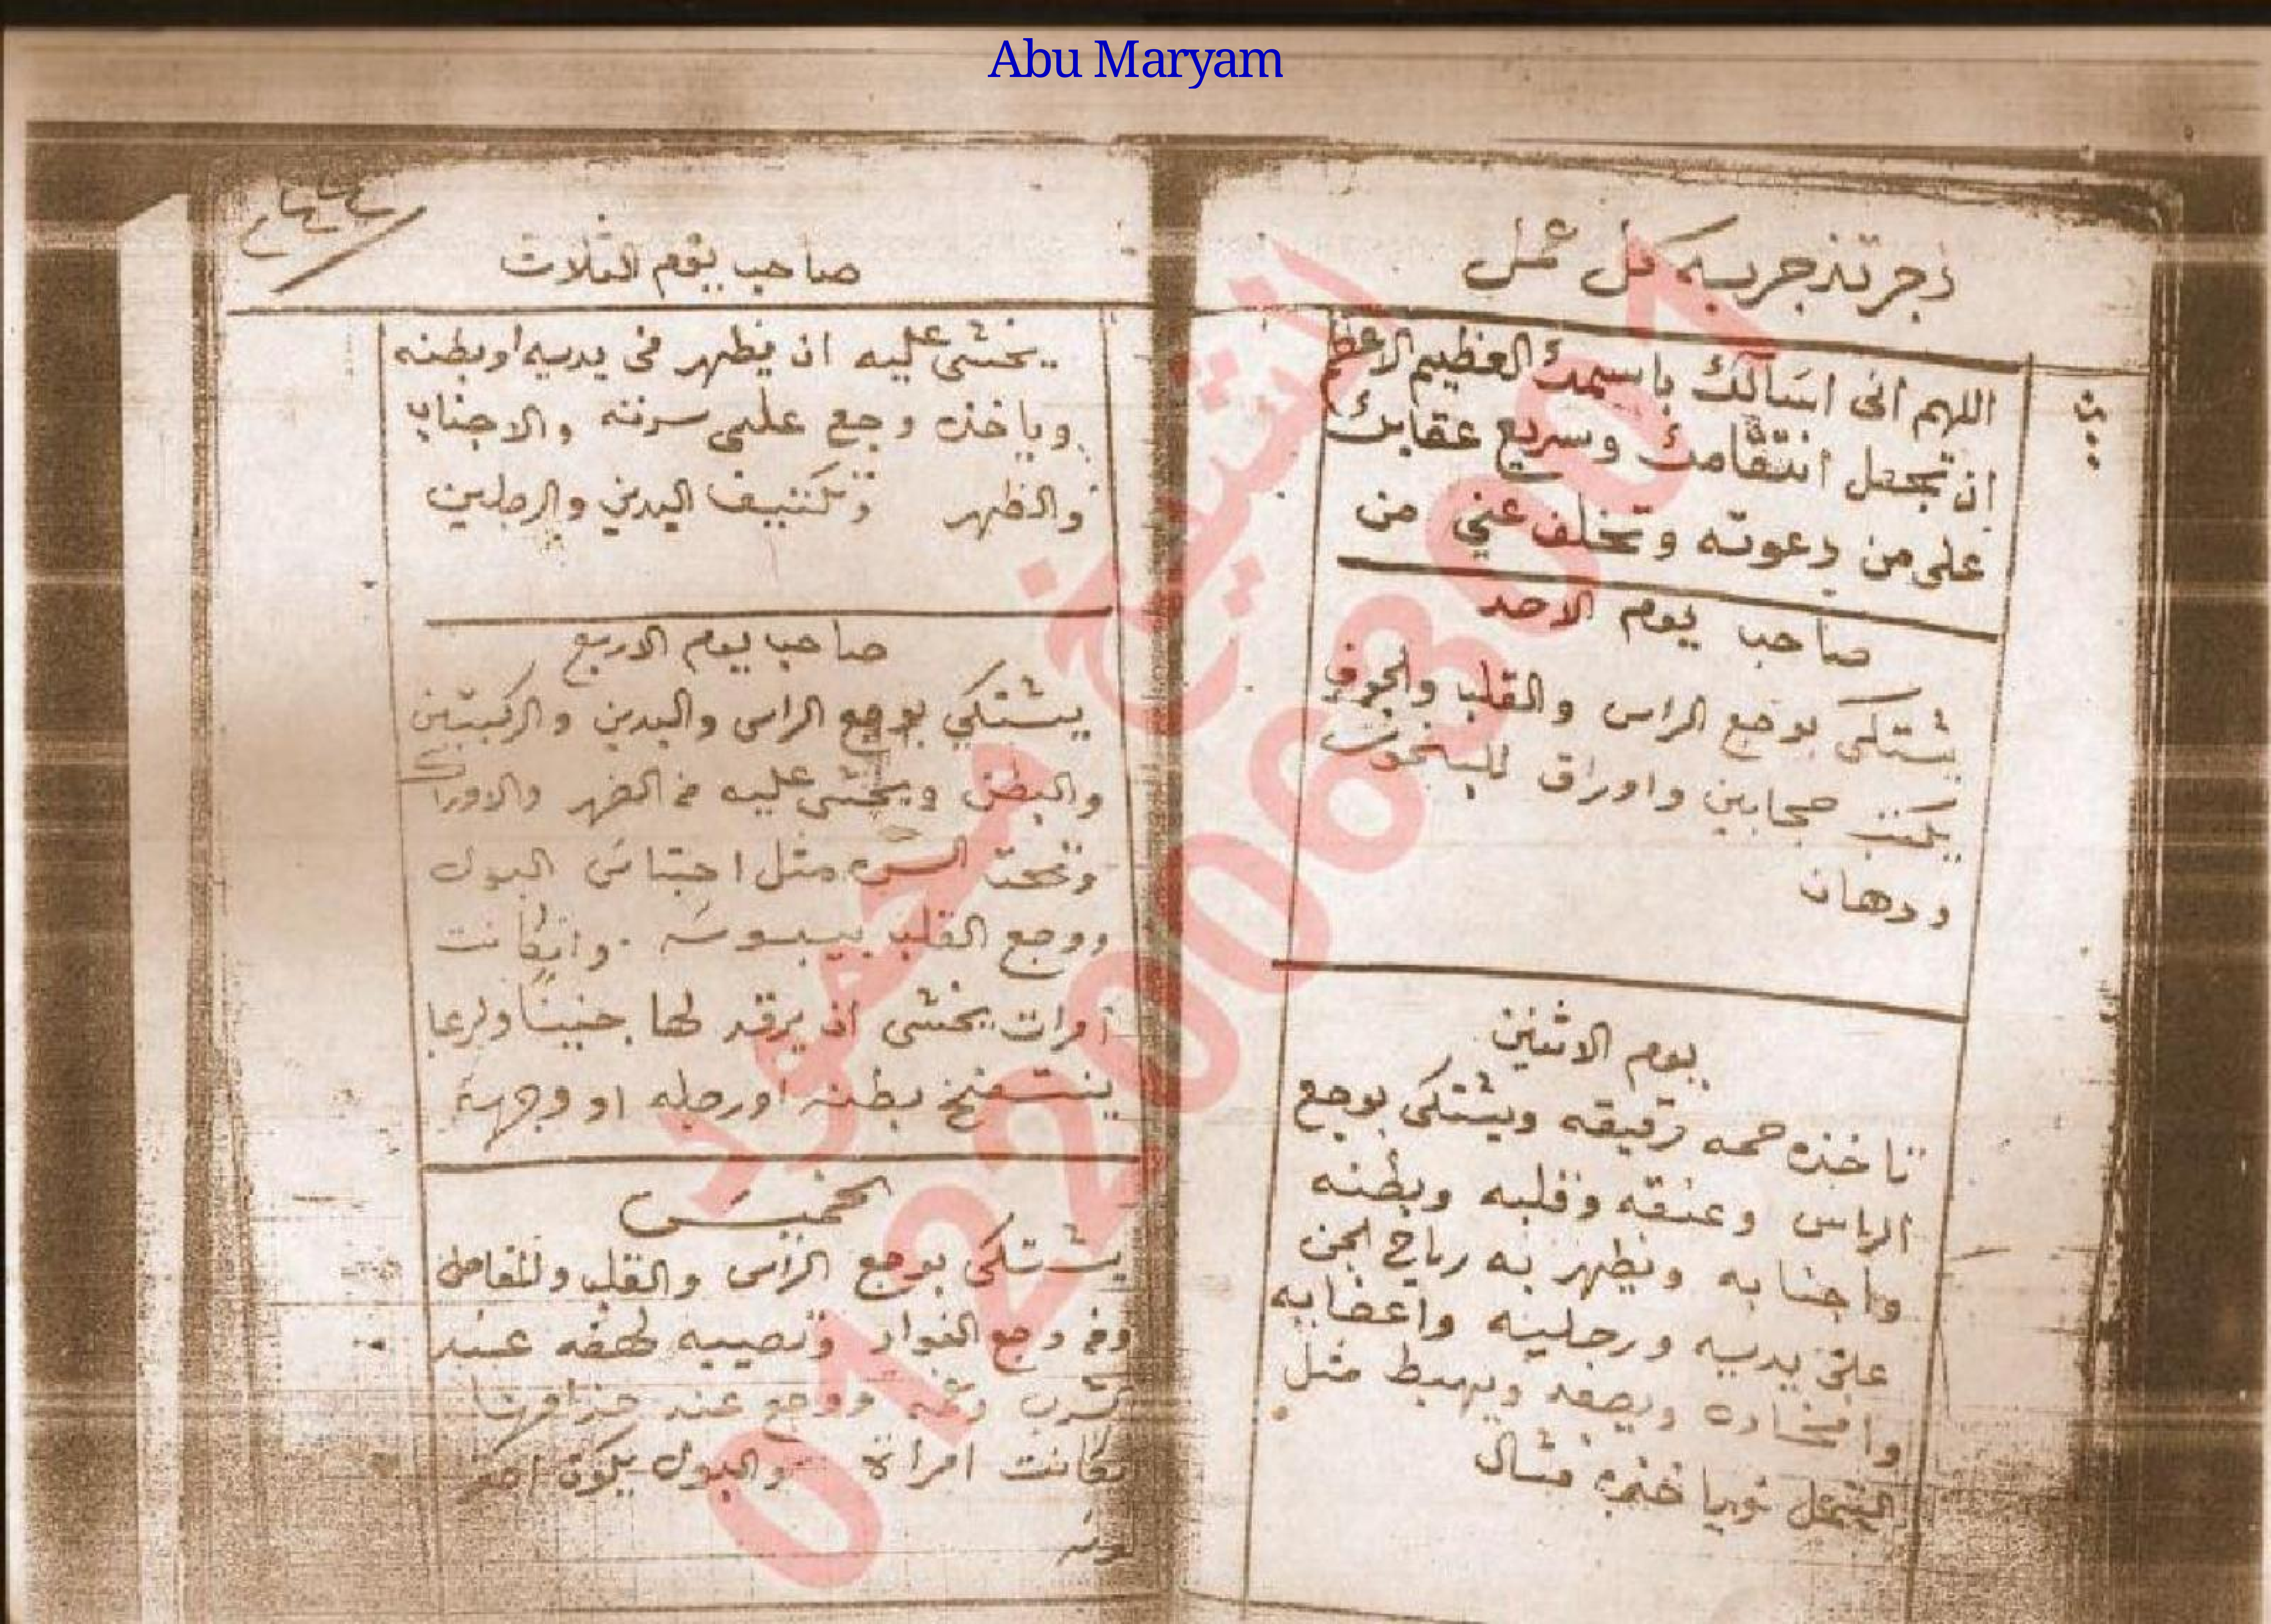 Abu Maryam
زجر تذجر به كل عمل
اللهم انى اسألك باسمك العظيم الاعظم
ان تجعل انتقامك وسريع عقابك
على من دعوته وتخلف عني من
صاحب يوم الاحد
يشتكى بوجع الراس والقلب والجوف
يكتب حجابين واوراق للبخور
ودهان
يوم الاثنين
تاخذه حمه رقيقه ويشتكى بوجع
الراس وعنقه وقلبه وبطنه
واجنابه ويظهر به رياح الجن
على يديه ورجليه واعضابه
ويصعد ويهبط مثل
النمل
صاحب يوم الثلاث
يخشى عليه ان يظهر فى يديه او بطنه
وياخذه وجع على سرته والاجناب
والظهر وتكتيف اليدين والرجلين
صاحب يوم الاربع
يشتكي بوجع الراس واليدين والركبتين
والبطن ويخشى عليه من الضهر والاوراك
وتحت السره مثل احتباس البول
ووجع القلب بيبوسه وان كانت
امرات يخشى ان يرقد لها جنينا
ينتفخ بطنه او رجله او وجهه
الخميس
يشتكى بوجع الراس والقلب والمفاصل
وجع الفواد وتصيبه لهفه عند
ووجع عند
كانت امراة والبول يكون
الشيخ محمود